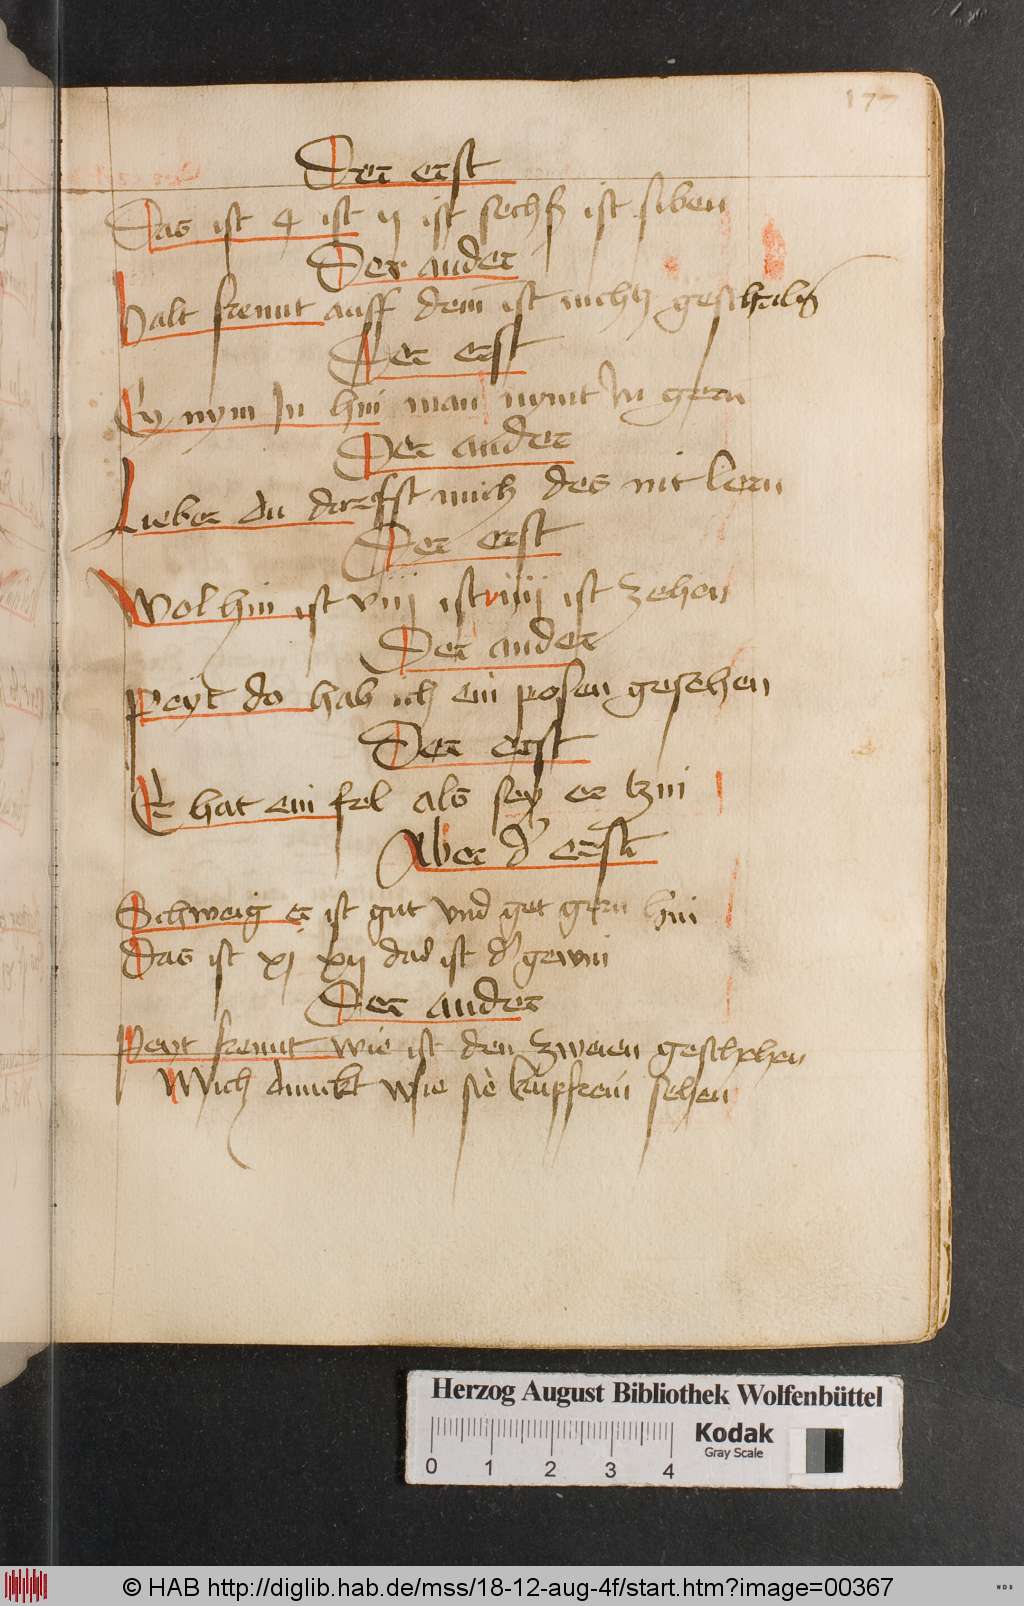 177
Der erst
Das ist 4 ist ij ist sechß ist siben
Der ander
Halt frennt auff dem ist nichtz
Der erst
Ey nym In hin man nymt In gern
Der ander
Lieber du derfst mich des nit lern
Der erst
Wol hin ist viij ist ist zehen
Der ander
Peyt do hab ich ein posen gesehen
Der erst
Er hat ein fel als sey er tzin
Aber d' erst
Schweig er ist gut vnd get gern hin
Das ist xj xij ist d' gewin
Der ander
Peyt frennt wie ist den zweien geschehen
Mich dunckt wie sie kupfrein sehen
Herzog August Bibliothek Wolfenbüttel
Kodak
Gray Scale
0 1 2 3 4
© HAB http://diglib.hab.de/mss/18-12-aug-4f/start.htm?image=00367